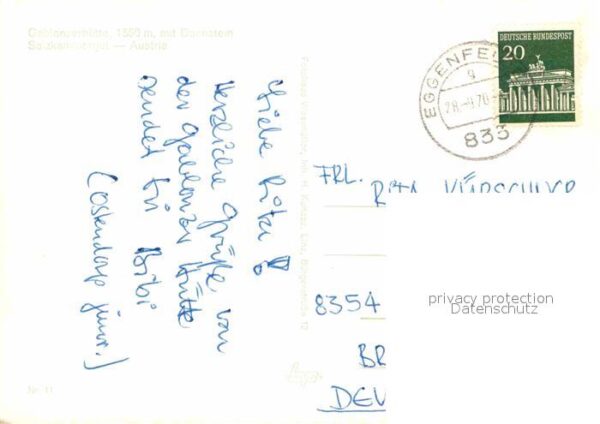 Gablonzerhütte, 1550 m, mit Donnerstein
Salzkammergut — Austria
Liebe Rita!
Herzliche Grüße von
der Gablonzer Hütte
sendet Dir Bibi
(Ostendorp junior.)
Nr. 11
DEUTSCHE BUNDESPOST
20
EGGENFEL
g
28.-9.70
833
FRL.
8354
BR
DEU
privacy protection
Datenschutz